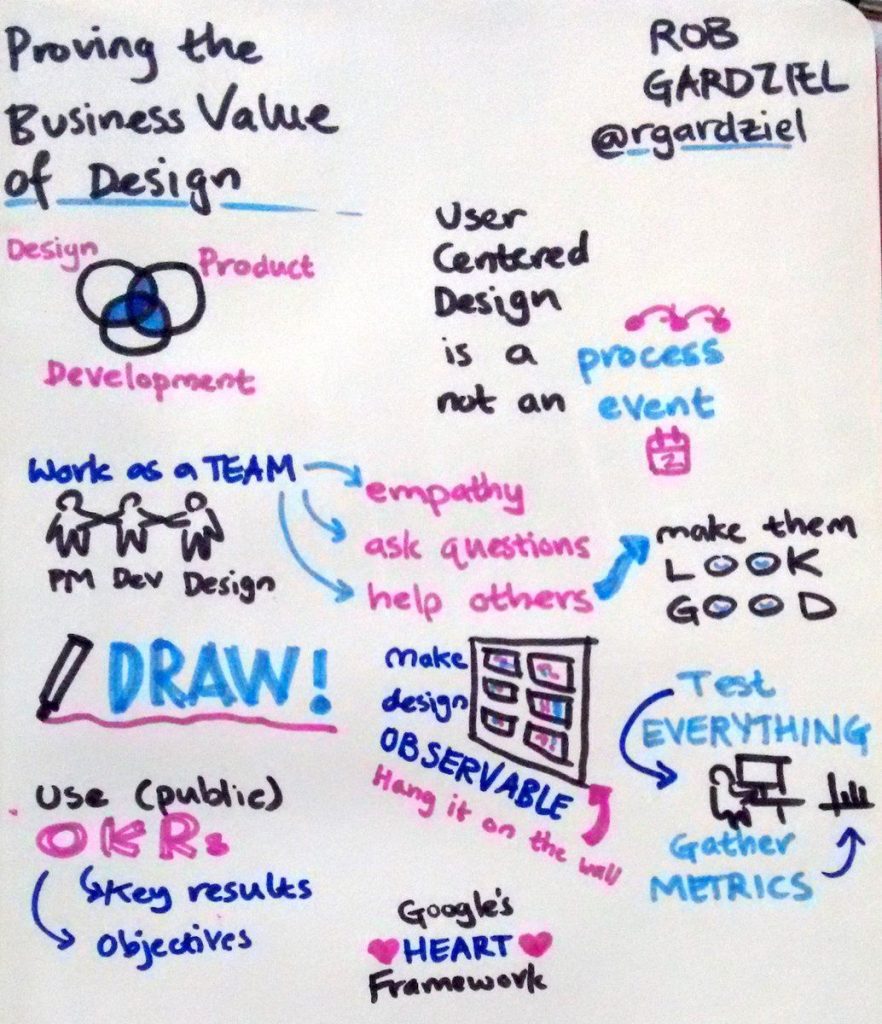 Proving the
Business Value
of Design
ROB
GARDZIEL
@rgardziel
Design
Product
Development
User
Centered
Design
is a process
not an event
2
Work as a TEAM
PM Dev Design
empathy
ask questions
help others
make them
LOOK
GOOD
DRAW!
make
design
OBSERVABLE
Hang it on the wall
Test
EVERYTHING
Gather
METRICS
Use (public)
OKRs
Key results
Objectives
Google's
HEART
Framework